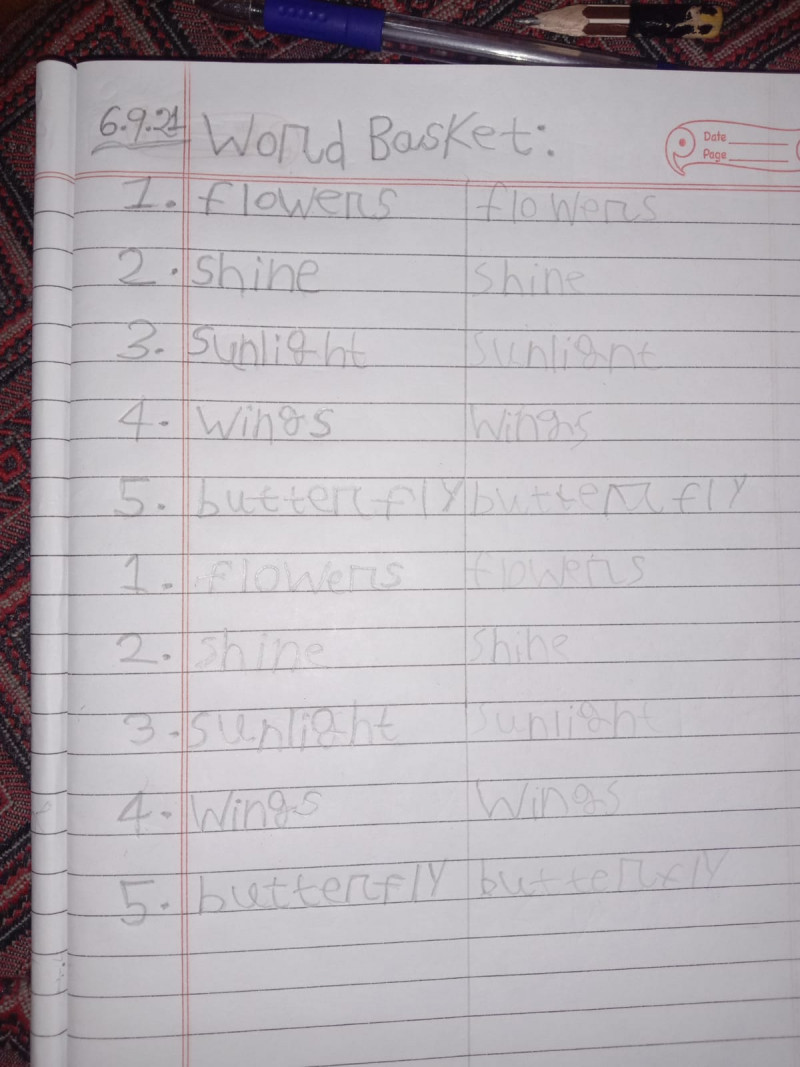 6.9.21 Word Basket:
Date
Page
1. flowers flowers
2. shine shine
3. sunlight sunlight
4. wings wings
5. butterfly butterfly
1. flowers flowers
2. shine shine
3. sunlight sunlight
4. wings wings
5. butterfly butterfly